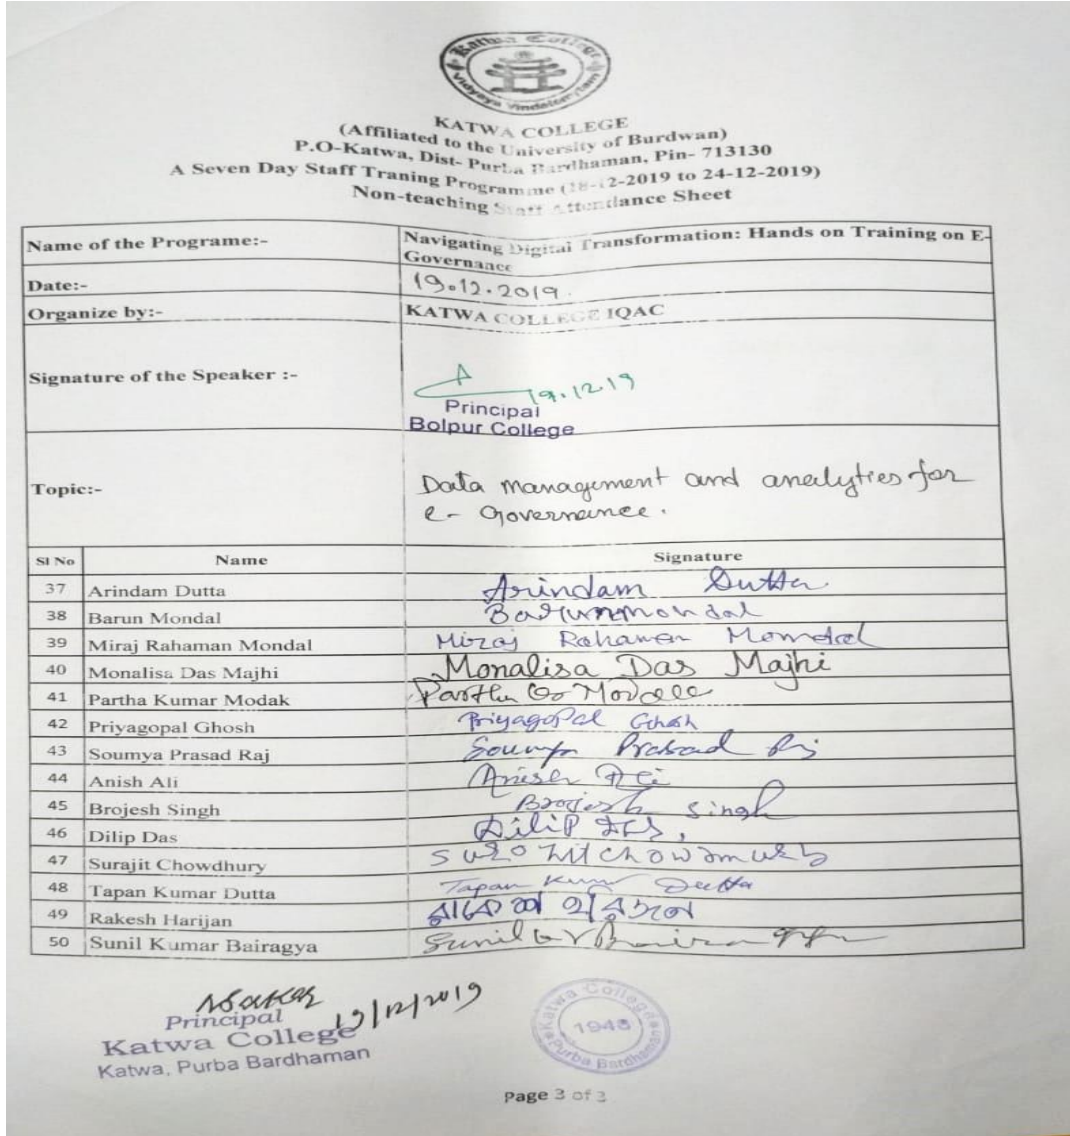 Katwa College
Vidyaya Vindateamritam
KATWA COLLEGE
(Affiliated to the University of Burdwan)
P.O-Katwa, Dist- Purba Bardhaman, Pin- 713130
A Seven Day Staff Traning Programme (18-12-2019 to 24-12-2019)
Non-teaching Staff Attendance Sheet
Name of the Programe:- Navigating Digital Transformation: Hands on Training on E-
Governance
Date:- 19.12.2019.
Organize by:- KATWA COLLEGE IQAC
Signature of the Speaker :- 19.12.19
Principal
Bolpur College
Topic:- Data management and analytics for
e- Governance.
Sl No Name Signature
37 Arindam Dutta Arindam Dutta
38 Barun Mondal Barun mondal
39 Miraj Rahaman Mondal Miraj Rahaman Mondal
40 Monalisa Das Majhi Monalisa Das Majhi
41 Partha Kumar Modak Partha
42 Priyagopal Ghosh Priyagopal Ghosh
43 Soumya Prasad Raj Soumya Prasad Raj
44 Anish Ali
45 Brojesh Singh Brojesh Singh
46 Dilip Das Dilip
47 Surajit Chowdhury
48 Tapan Kumar Dutta Tapan Kumar Dutta
49 Rakesh Harijan
50 Sunil Kumar Bairagya Sunil
19/12/2019
Principal
Katwa College
Katwa, Purba Bardhaman
Katwa College
1948
Purba Bardhaman
Page 3 of 3